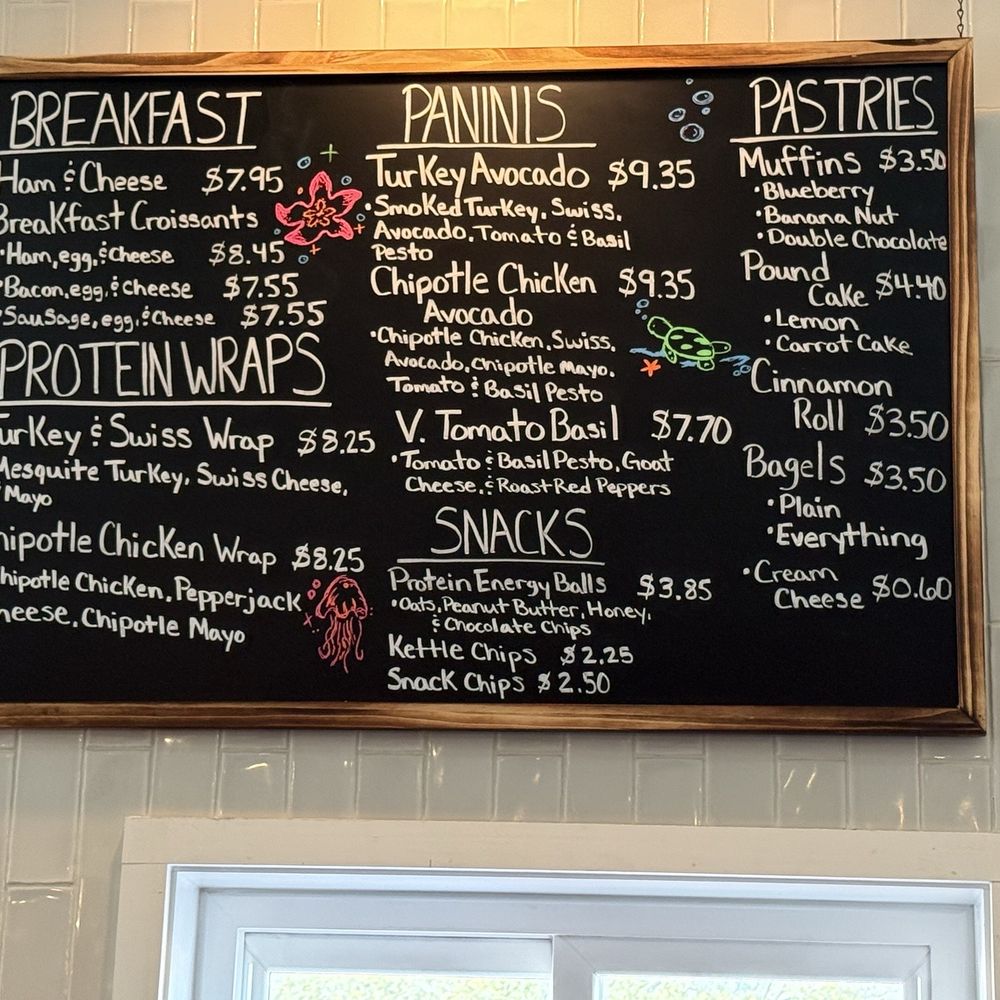 BREAKFAST
Ham & Cheese $7.95
Breakfast Croissants
•Ham, egg, & cheese $8.45
•Bacon, egg, & cheese $7.55
•Sausage, egg, & cheese $7.55
PROTEIN WRAPS
urkey & Swiss Wrap $8.25
Mesquite Turkey, Swiss Cheese,
Mayo
hipotle Chicken Wrap $8.25
hipotle Chicken, Pepperjack
heese, Chipotle Mayo
PANINIS
Turkey Avocado $9.35
•Smoked Turkey, Swiss,
Avocado, Tomato & Basil
Pesto
Chipotle Chicken $9.35
Avocado
•Chipotle Chicken, Swiss,
Avocado, Chipotle Mayo,
Tomato & Basil Pesto
V. Tomato Basil $7.70
•Tomato & Basil Pesto, Goat
Cheese, & Roast Red Peppers
SNACKS
Protein Energy Balls $3.85
•Oats, Peanut Butter, Honey,
& Chocolate Chips
Kettle Chips $2.25
Snack Chips $2.50
PASTRIES
Muffins $3.50
•Blueberry
•Banana Nut
•Double Chocolate
Pound
Cake $4.40
•Lemon
•Carrot Cake
Cinnamon
Roll $3.50
Bagels $3.50
•Plain
•Everything
•Cream
Cheese $0.60